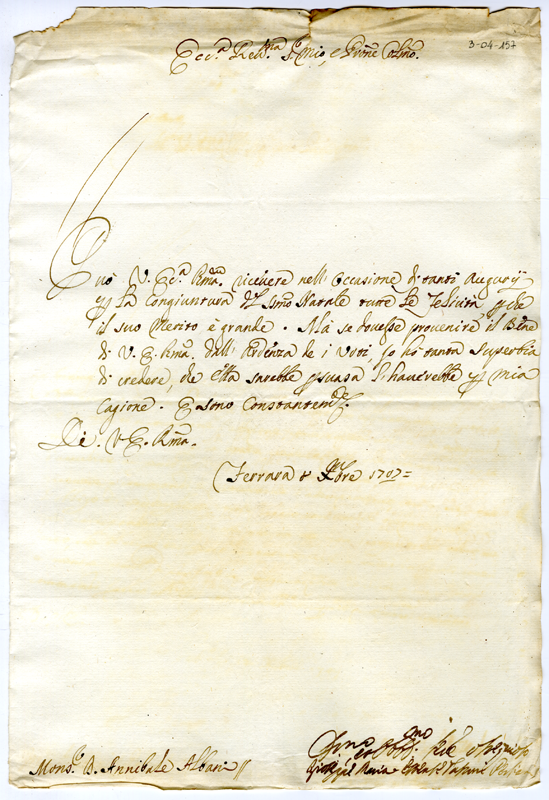 3-04-157
Ecc.ª Rev.ma S.r mio, e Prõne Colmo.
Può V. Ec.ª Rma. ricevere nell'Occasione di tanti Augurÿ
p la Congiuntura del Smo Natale tutte Le Felicità, p che
il suo Merito è grande. Mà se dovesse provenire il Bene
di V. E. Rma. dall'Ardenza de i Voti, Io hò tanta superbia
di credere, che Ella sarebbe psuasa L'haverebbe p mia
Cagione. E sono Constantem.te
Di V. E. Rma.
Ferrara 8 Xbre 1707=
Mons.r D. Annibale Albani //